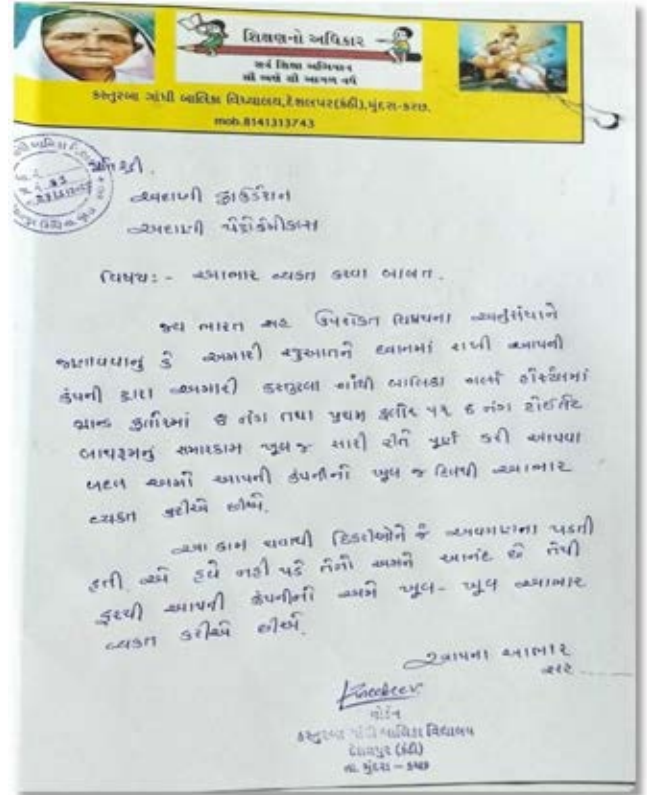 શિક્ષણનો અધિકાર
સર્વ શિક્ષા અભિયાન
સૌ ભણે સૌ આગળ વધે
કસ્તુરબા ગાંધી બાલિકા વિધ્યાલય,દેશલપર(કંઠી),મુંદરા-કચ્છ.
mob.8141313743
પ્રતિશ્રી.
અદાણી ફાઉંડેશન
અદાણી પેટ્રોકેમીકલ્સ
વિષય:- આભાર વ્યકત કરવા બાબત.
જય ભારત સહ ઉપરોકત વિષયના અનુસંધાને
જણાવવાનું કે અમારી રજુઆતને ધ્યાનમાં રાખી આપની
કંપની દ્વારા અમારી કસ્તુરબા ગાંધી બાલિકા ગર્લ્સ હોસ્ટેલમાં
ગ્રાઉન્ડ ફ્લોરમાં નંગ તથા પ્રથમ ફ્લોર પર નંગ ટોઈલેટ
બાથરૂમનું સમારકામ ખૂબ જ સારી રીતે પૂર્ણ કરી આપવા
બદલ અમો આપની કંપનીનો ખુબ જ દિલથી આભાર
વ્યકત કરીએ છીએ.
આ કામ થવાથી દિકરીઓને જે અવગણના પડતી
હતી એ હવે નહી પડે તેનો અમને આનંદ છે તેથી
ફરથી આપની કંપનીનો અમે ખૂબ-ખૂબ આભાર
વ્યકત કરીએ છીએ.
આપના આભાર
સહ
વોર્ડન
કસ્તુરબા ગાંધી બાલિકા વિદ્યાલય
દેશલપુર (કંઠી)
તા. મુંદરા - કચ્છ